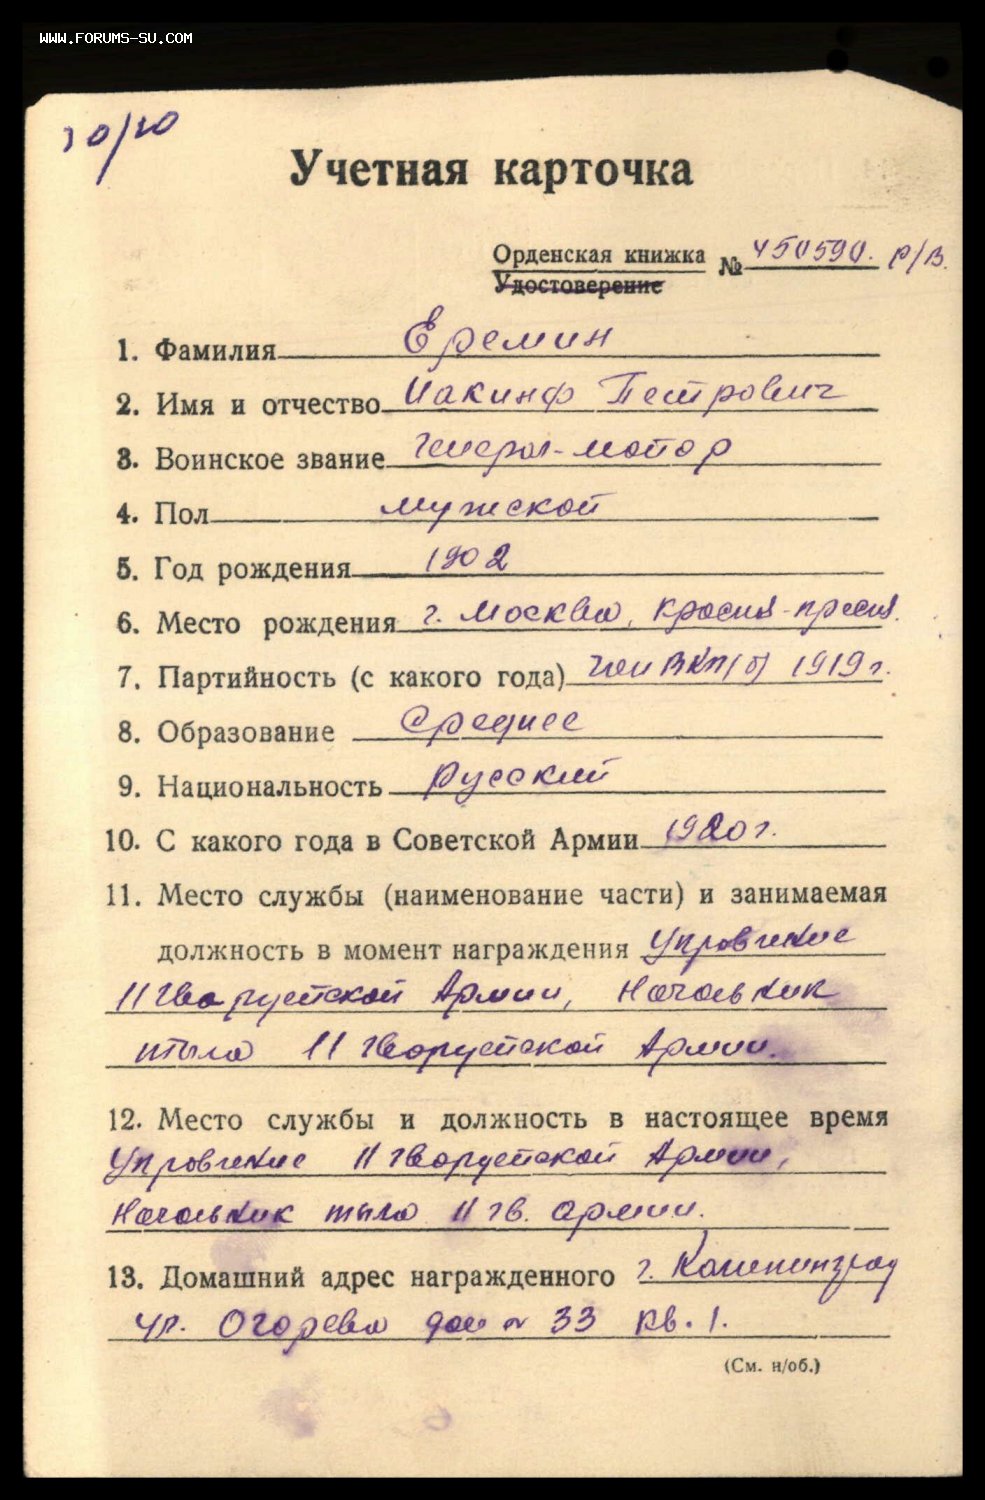 WWW.FORUMS-SU.COM
Учетная карточка
Орденская книжка № 450590. Р/В.
Удостоверение
1. Фамилия Еремин
2. Имя и отчество Иакинф Петрович
3. Воинское звание Генерал-майор
4. Пол мужской
5. Год рождения 1902
6. Место рождения г. Москва, Красная-пресня.
7. Партийность (с какого года) член ВКП/б/ 1919 г.
8. Образование Среднее
9. Национальность Русский
10. С какого года в Советской Армии 1920 г.
11. Место службы (наименование части) и занимаемая
должность в момент награждения Управление
11 Гвардейской Армии, Начальник
тыла 11 Гвардейской Армии.
12. Место службы и должность в настоящее время
Управление 11 Гвардейской Армии,
Начальник тыла 11 гв. армии.
13. Домашний адрес награжденного г. Калининград
ул. Огорева дом № 33 кв. 1.
(См. н/об.)